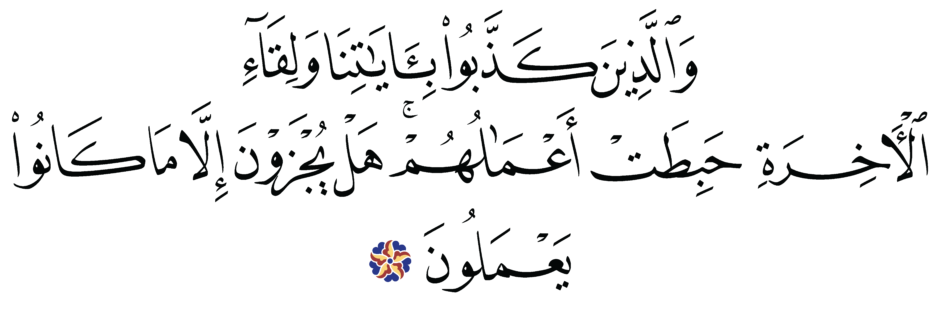 وَٱلَّذِينَ كَذَّبُوا۟ بِـَٔايَـٰتِنَا وَلِقَآءِ
ٱلْـَٔاخِرَةِ حَبِطَتْ أَعْمَـٰلُهُمْ ۚ هَلْ يُجْزَوْنَ إِلَّا مَا كَانُوا۟
يَعْمَلُونَ